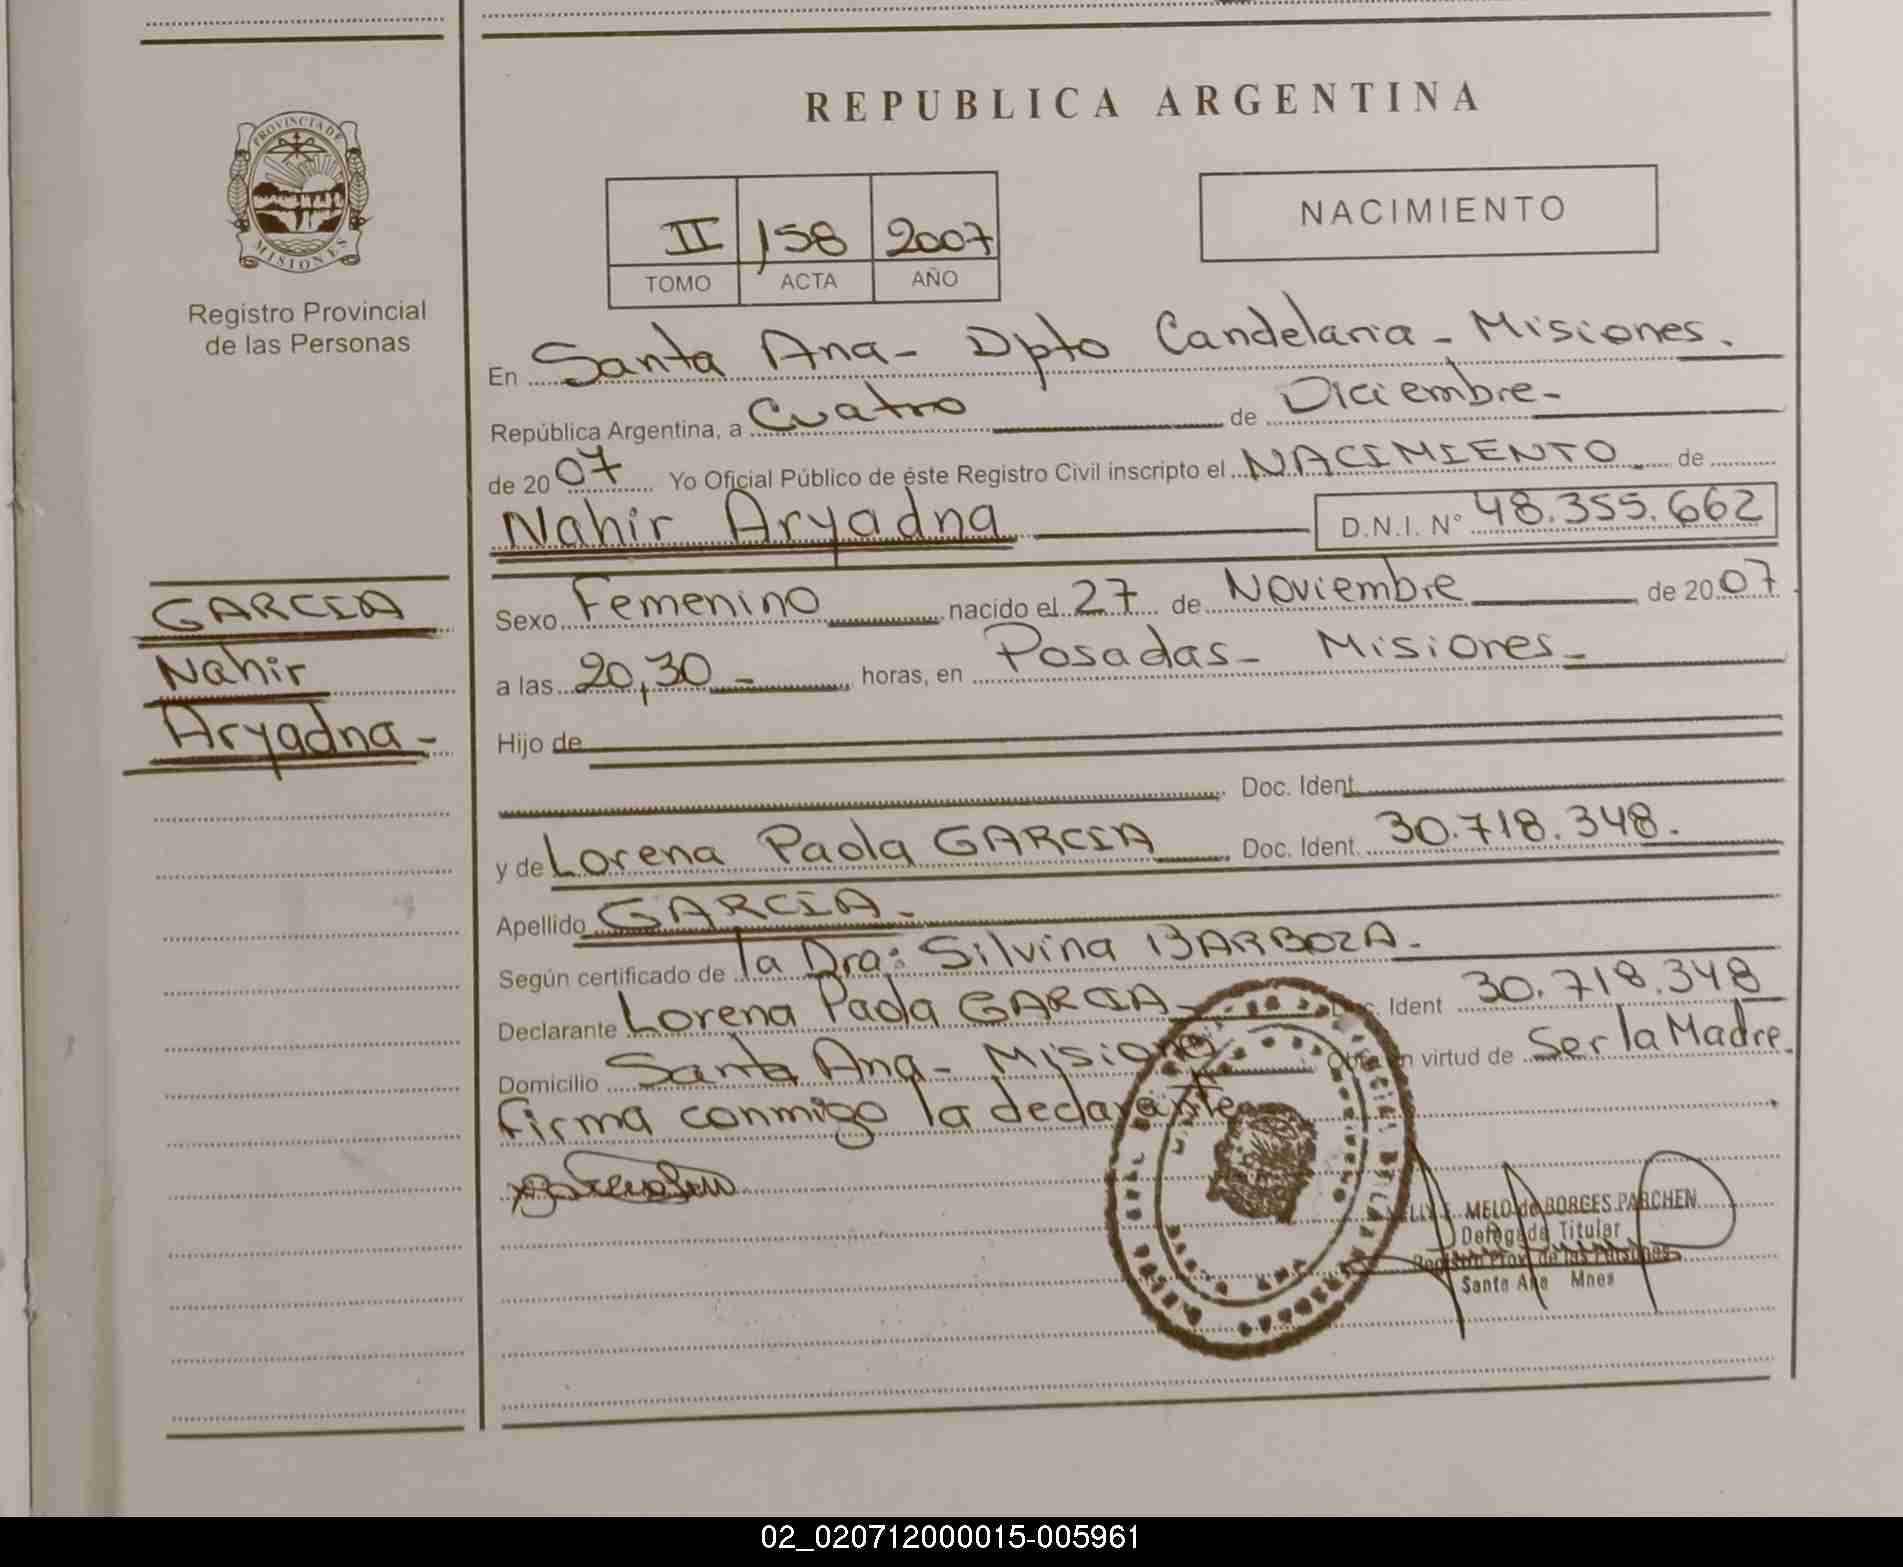 REPUBLICA ARGENTINA
PROVINCIA DE
MISIONES
Registro Provincial
de las Personas
NACIMIENTO
II 158 2007
TOMO ACTA AÑO
En Santa Ana - Dpto Candelaria - Misiones.
República Argentina, a Cuatro de Diciembre-
de 2007 Yo Oficial Público de éste Registro Civil inscripto el NACIMIENTO de
Nahir Aryadna D.N.I. N° 48.355.662
GARCIA
Nahir
Aryadna-
Sexo Femenino nacido el 27 de Noviembre de 2007
a las 20,30 - horas, en Posadas - Misiones -
Hijo de
Doc. Ident.
y de Lorena Paola GARCIA Doc. Ident. 30.718.348.
Apellido GARCIA -
Según certificado de la Dra: Silvina BARBOZA -
Declarante Lorena Paola GARCIA - Ident 30.718.348
Domicilio Santa Ana - Misiones virtud de Ser la Madre
Firma conmigo la declarante
MELO de BORGES PARCHEN
Delegada Titular
Registro Prov. de las Personas
Santa Ana Mnes
02_020712000015-005961